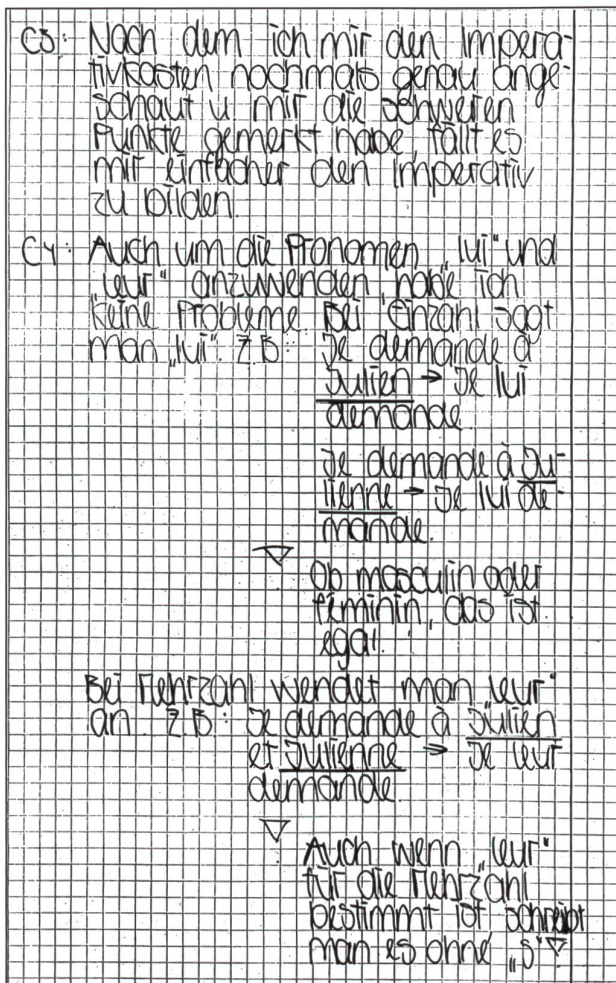 C3: Nach dem ich mir den Impera-
tivkasten nochmals genau ange-
schaut u mir die schweren
Punkte gemerkt habe, fällt es
mir einfacher den Imperativ
zu bilden.
C4: Auch um die Pronomen „lui“ und
„leur“ anzuwenden, habe ich
keine Probleme. Bei Einzahl sagt
man „lui“. Z.B: Je demande à
Julien → Je lui
demande.
Je demande à Ju-
lienne → Je lui de-
mande.
Ob masculin oder
féminin, das ist
egal.
Bei Mehrzahl wendet man „leur“
an. Z.B: Je demande à Julien
et Julienne → Je leur
demande.
Auch wenn „leur“
für die Mehrzahl
bestimmt ist, schreibt
man es ohne „s“